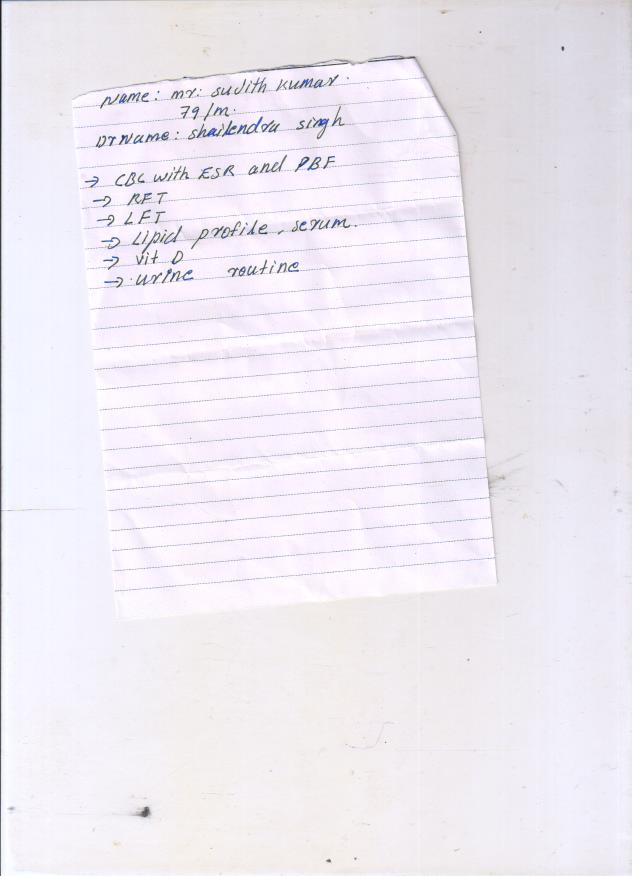 Name: mr: sujith kumar.
79/m.
Dr Name: shailendra singh
→ CBC with ESR and PBF
→ RFT
→ LFT
→ Lipid profile, serum.
→ vit D
→ urine routine